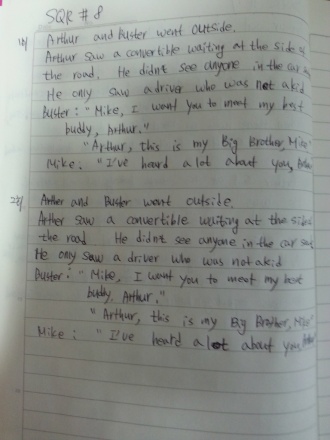 SQR # 8
1) Arthur and Buster went outside.
Arthur saw a convertible waiting at the side of
the road. He didn't see anyone in the car
He only saw a driver who was not a kid
Buster : " Mike, I want you to meet my best
buddy, Arthur."
" Arthur, this is my Big Brother, Mike"
Mike : "I've heard a lot about you,
2) Arther and Buster went outside.
Arther saw a convertible waiting at the side
the road He didn't see anyone in the car
He only saw a driver who was not a kid
Buster : " Mike, I want you to meet my best
buddy, Arthur."
" Arthur, this is my Big Brother, Mike"
Mike : " I've heard a lot about you,